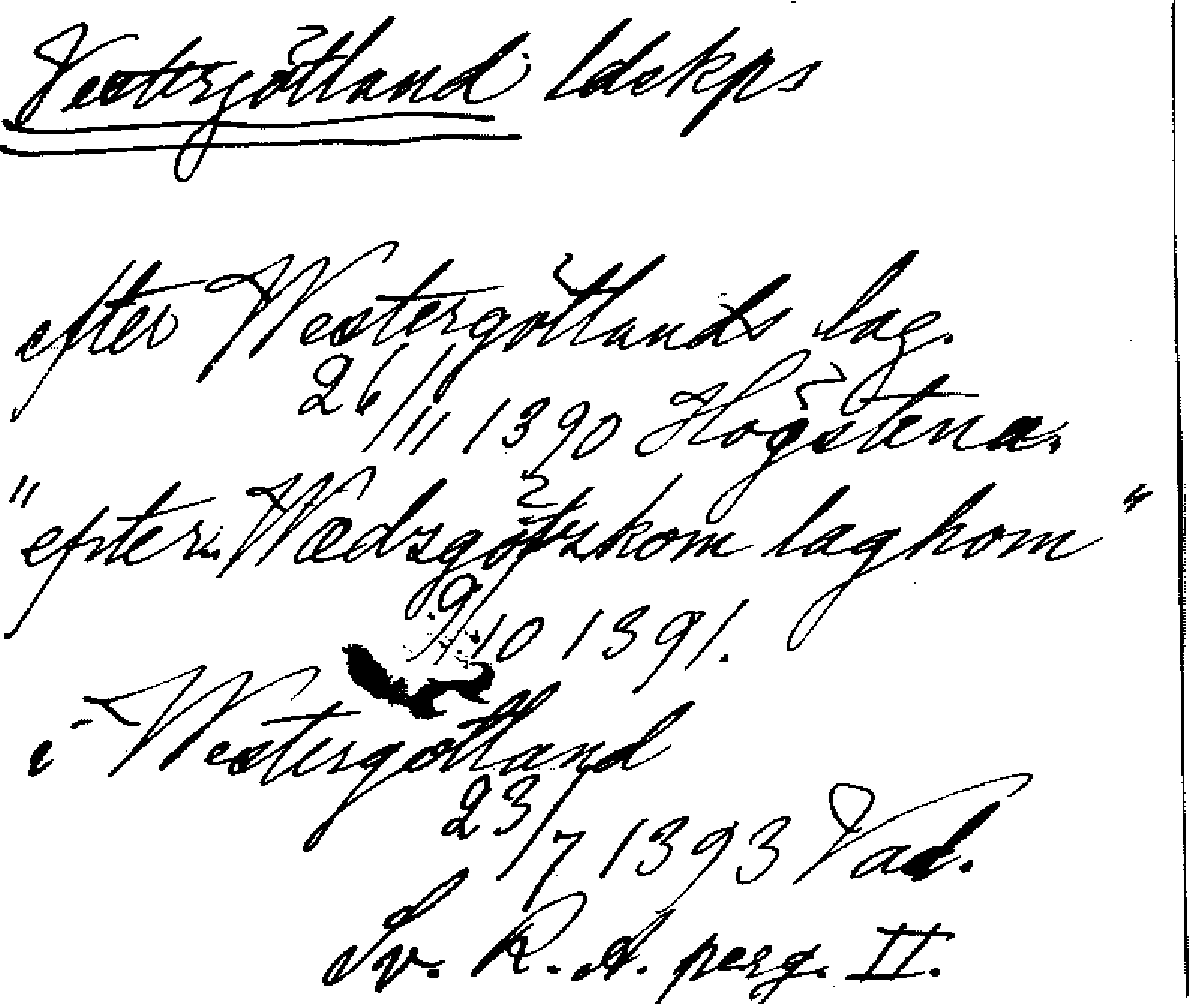 Vestergötland ldskps
efter Westergötlands lag.
26/11 1390 Högstena.
"efter Wædzgötzskom laghom"
9/10 1391.
i Westergötland
23/7 1393 Vad.
Sv. R. A. perg. II.